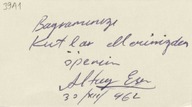 39A1
Bayramınızı
Kutlar Ellerinizden
öperim
Altay
30/XII/962